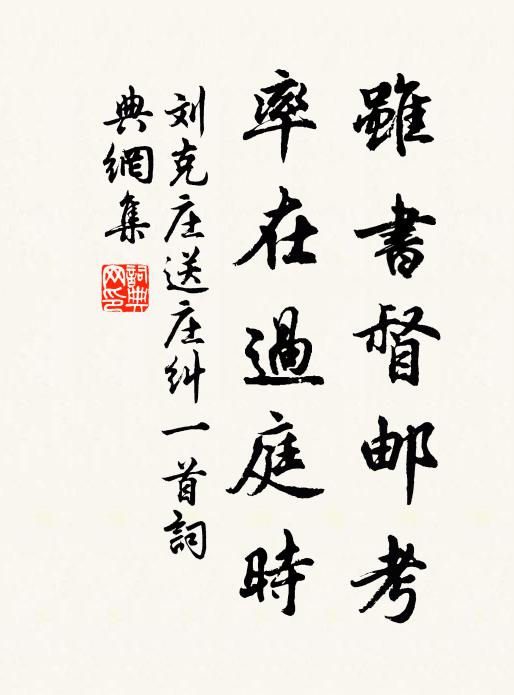 雖書督邮考
率在過庭時
刘克庄送庄纠一首詞
典網集
詞典网印